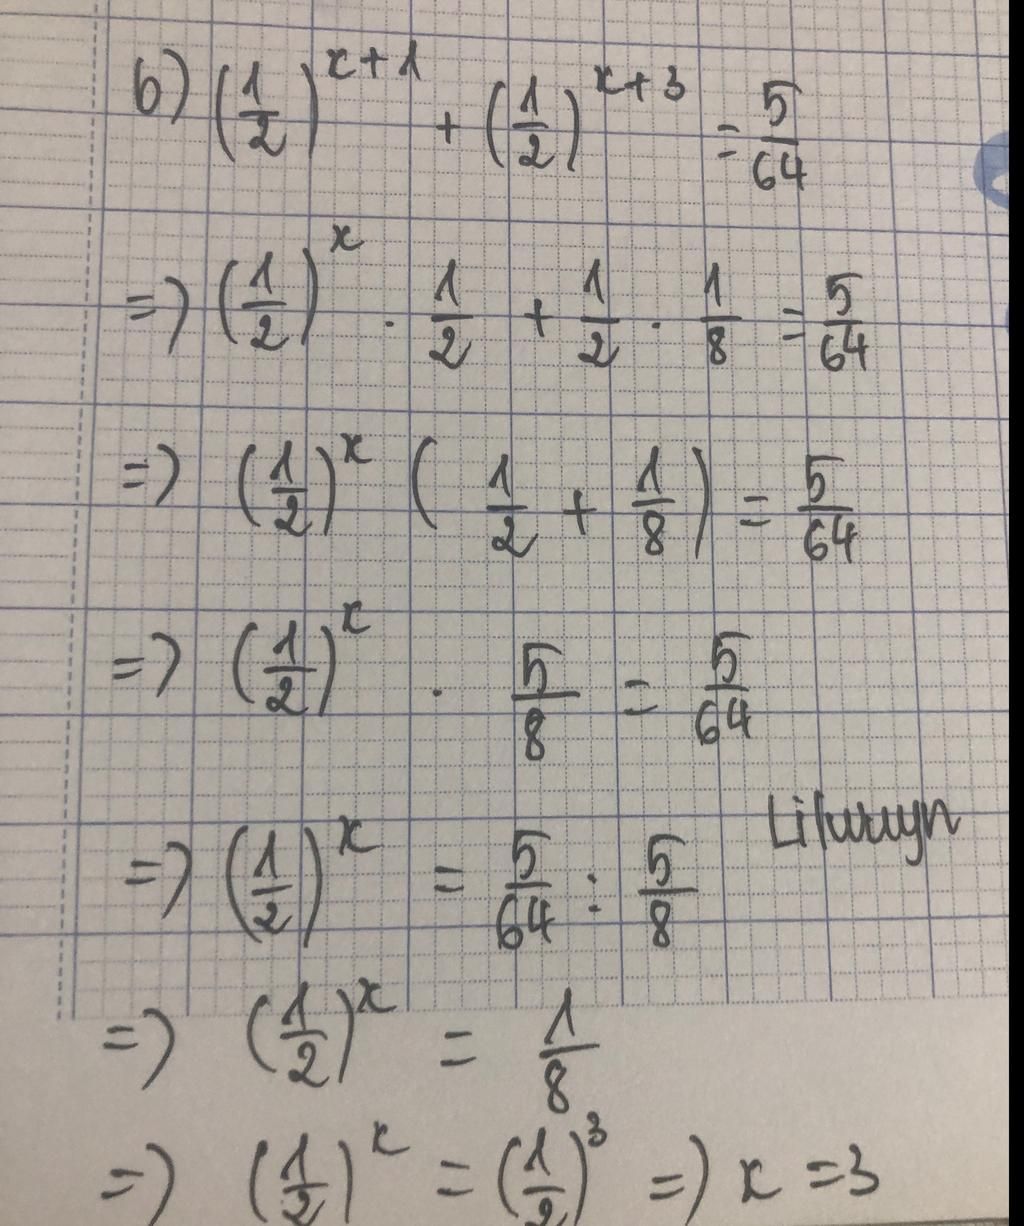 b) (1/2)^(x+1) + (1/2)^(x+3) = 5/64
=> (1/2)^x . 1/2 + 1/2 . 1/8 = 5/64
=> (1/2)^x ( 1/2 + 1/8 ) = 5/64
=> (1/2)^x . 5/8 = 5/64
=> (1/2)^x = 5/64 : 5/8
=> (1/2)^x = 1/8
=> (1/2)^x = (1/2)^3 => x = 3